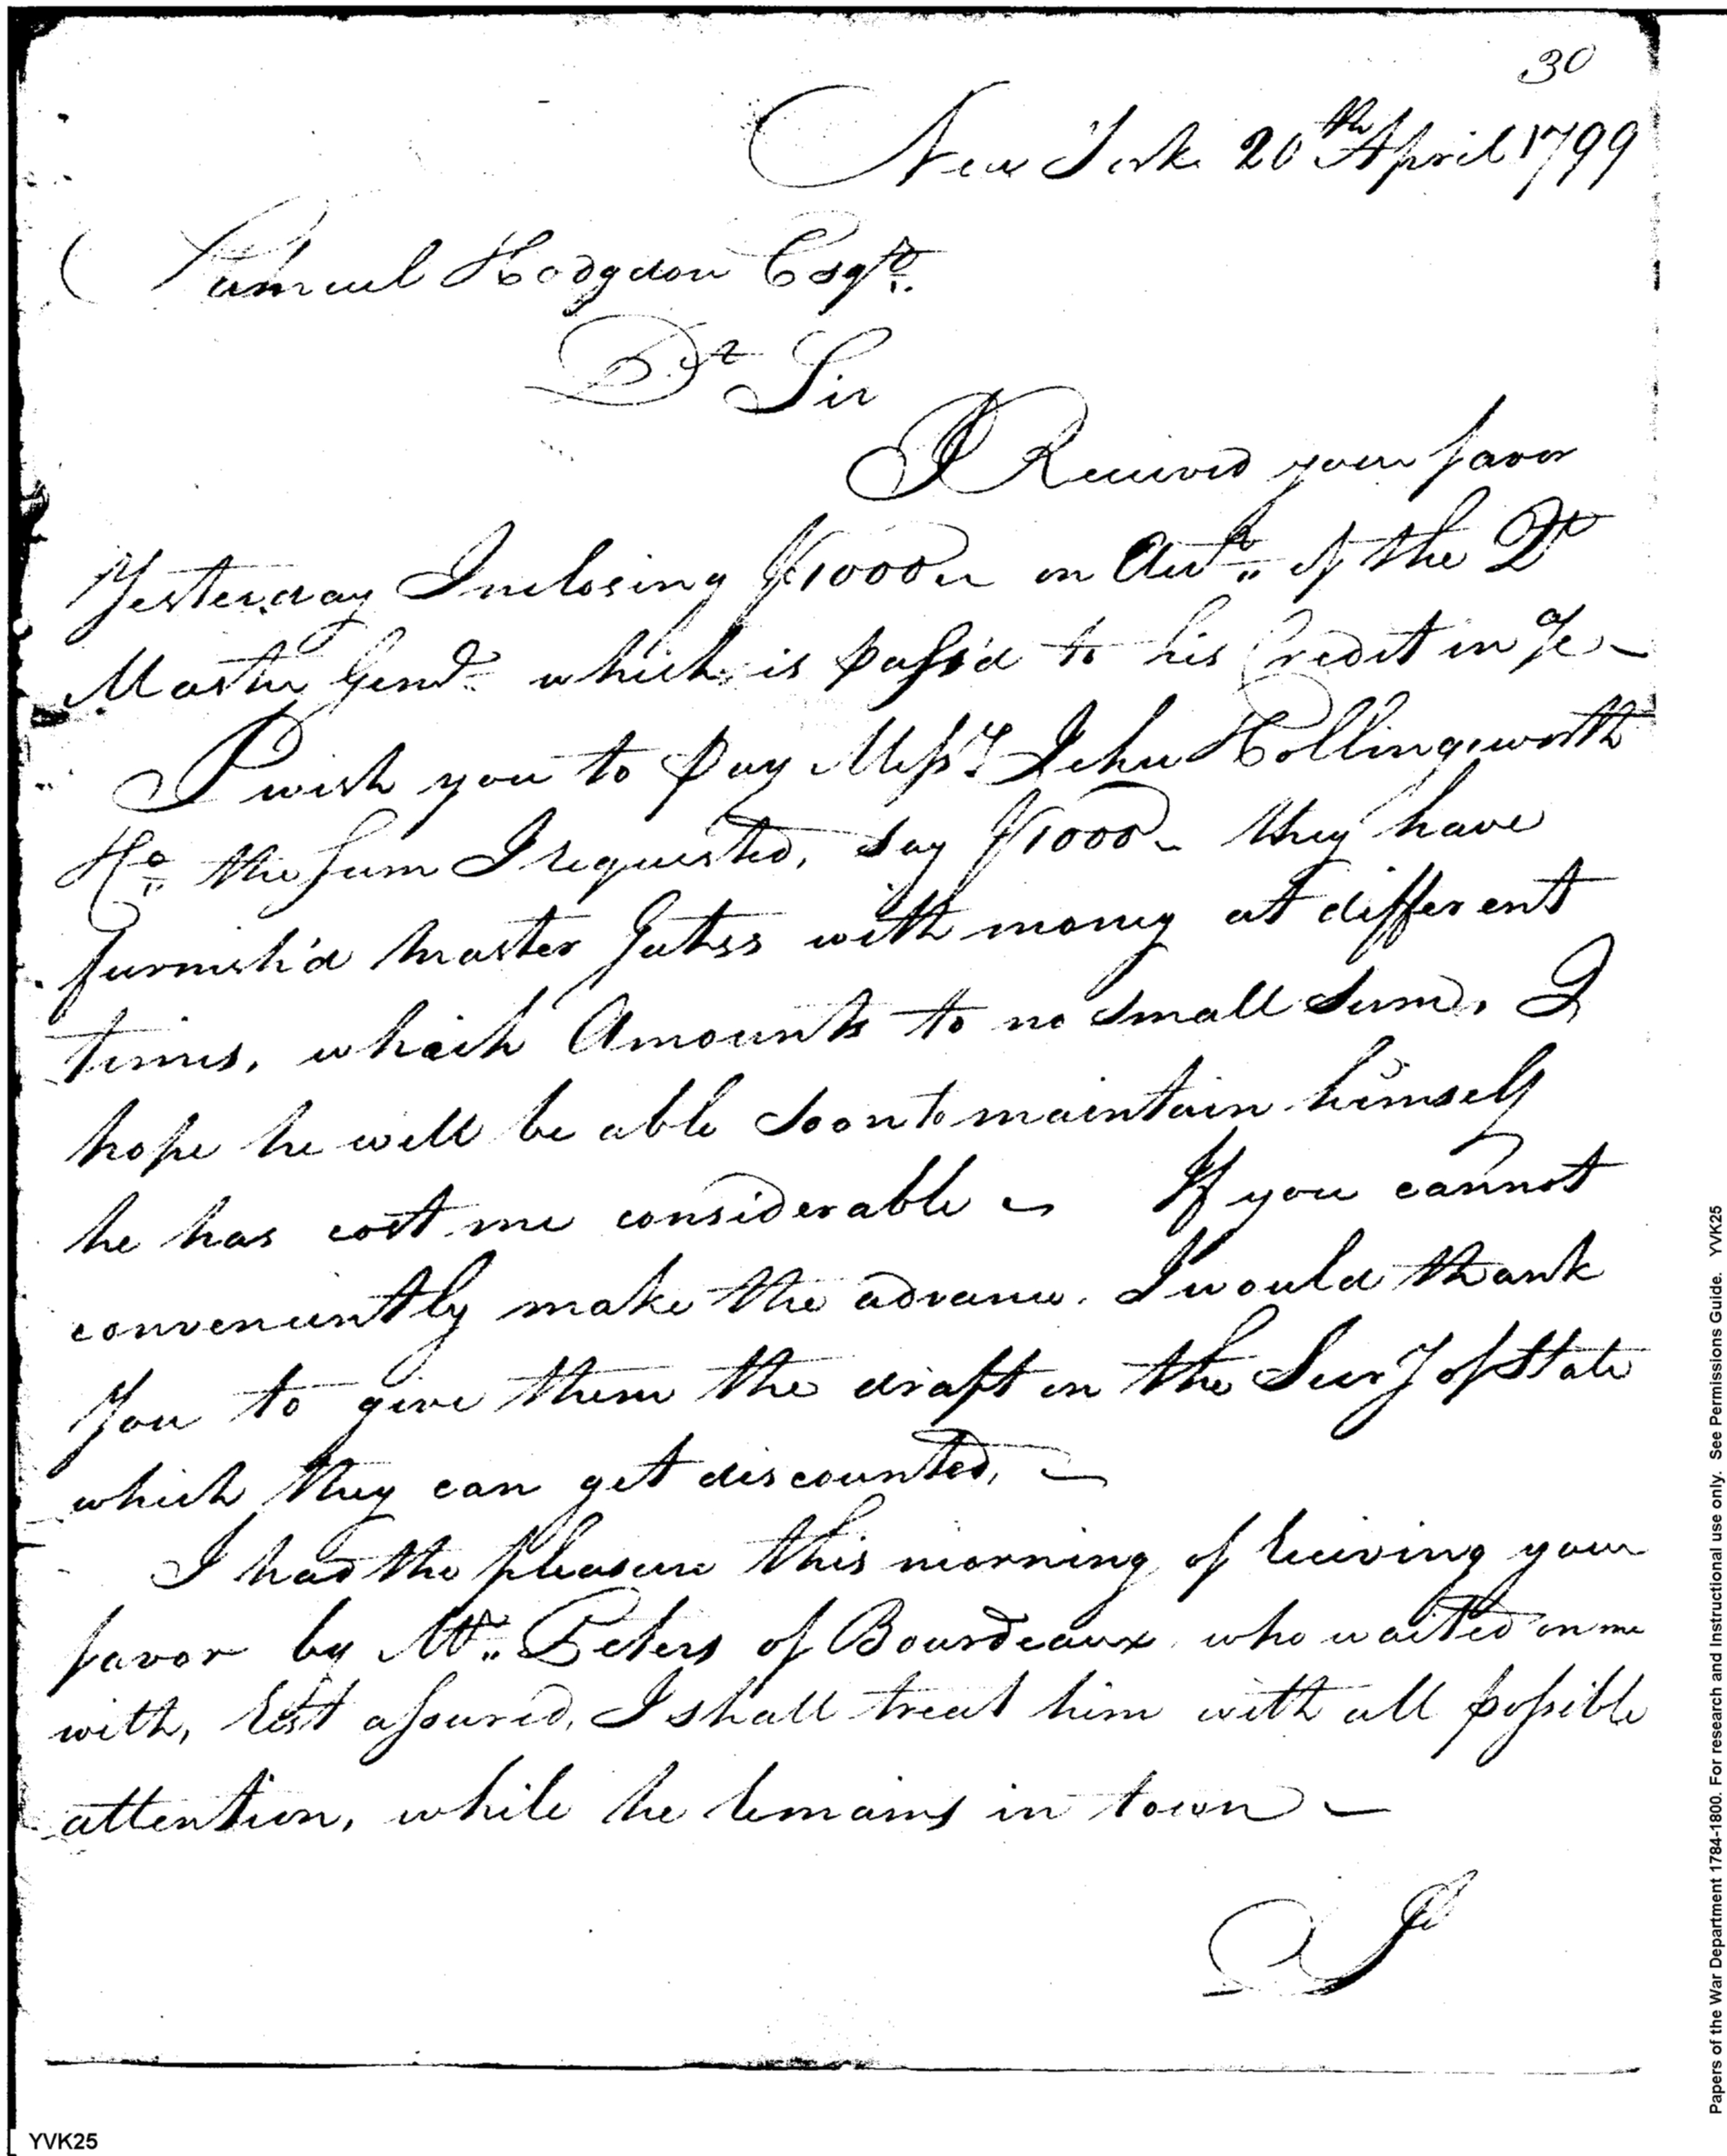 30
New York 20th April 1799
Samuel Hodgdon Esqr.
Dr Sir
I Received your favor
Yesterday Inclosing $1000 on of the Qr
Master Genl. which is pass'd to his Credit in a/c
I wish you to pay Messrs John Hollingsworth
the sum I requested, say $1000 they have
furnish'd master Gates with money at different
times, which Amounts to no small sum. I
hope he will be able soon to maintain himself
he has cost me considerable If you cannot
conveniently make the advance. I would thank
You to give them the draft on the Secry of State
which they can get discounted,
I had the pleasure this morning of receiving your
favor by Mr. Peters of Bourdeaux who waited on me
with, rest assured, I shall treat him with all possible
attention, while he remains in town
YVK25
Papers of the War Department 1784-1800. For research and Instructional use only. See Permissions Guide. YVK25